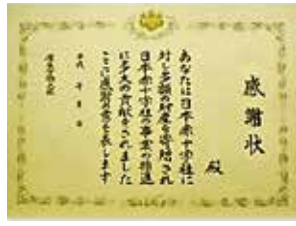 感謝状
殿
あなたは日本赤十字社に
対し多額の財産を寄贈され
日本赤十字社の事業の推進
に多大の貢献をされました
ことに感謝の意を表します
平成 年 月 日
厚生労働大臣